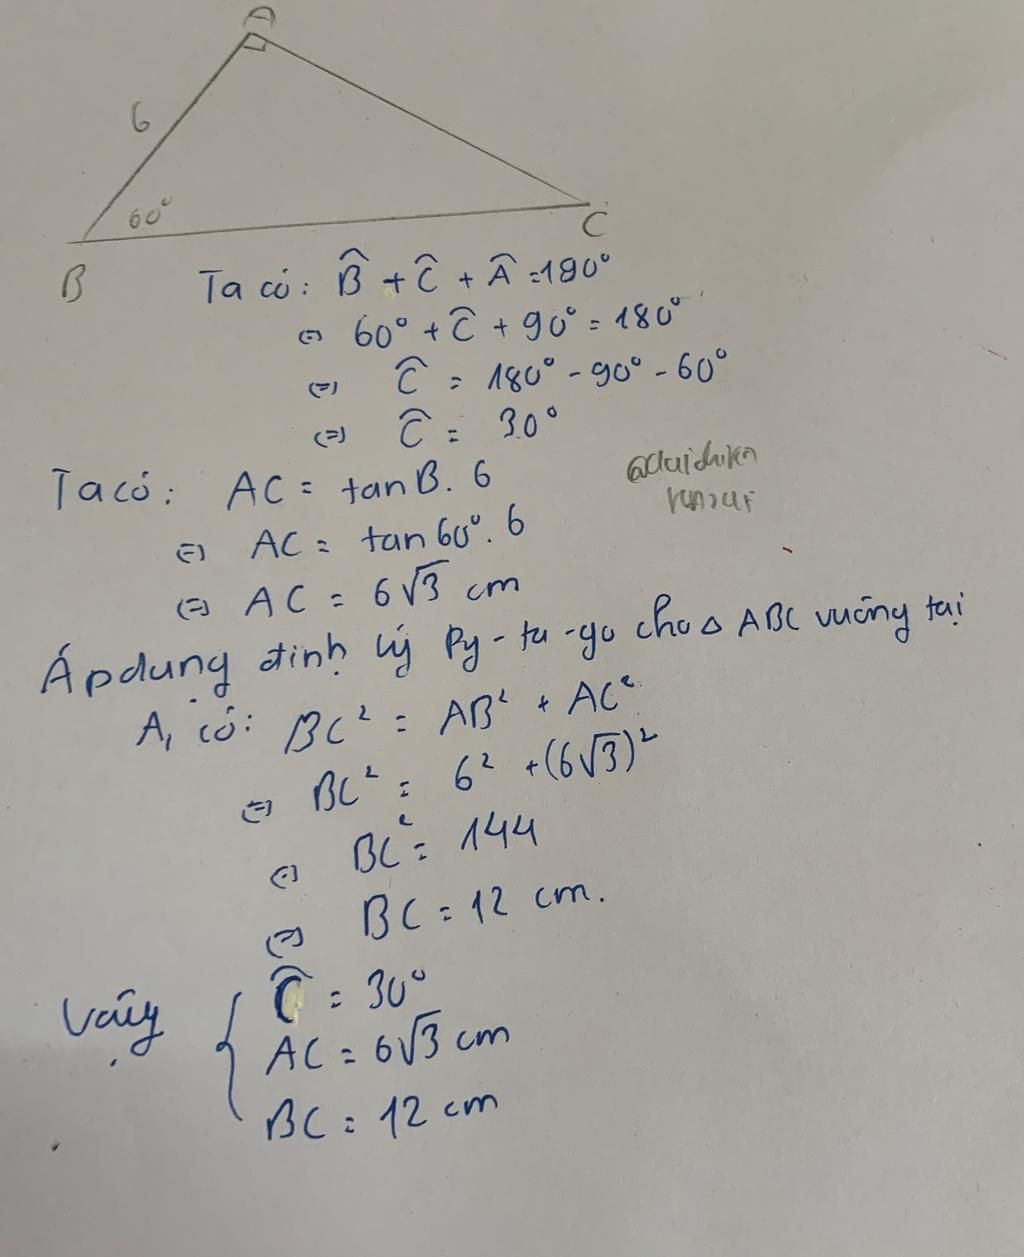 A
6
60°
C
B
Ta có: B̂ + Ĉ + Â = 180°
⇔ 60° + Ĉ + 90° = 180°
⇔ Ĉ = 180° - 90° - 60°
⇔ Ĉ = 30°
Ta có: AC = tan B. 6
⇔ AC = tan 60°. 6
⇔ AC = 6√3 cm
Áp dụng định lý Py-ta-go cho Δ ABC vuông tại
A, có: BC² = AB² + AC²
⇔ BC² = 6² + (6√3)²
⇔ BC² = 144
⇔ BC = 12 cm.
Vậy { Ĉ = 30°
AC = 6√3 cm
BC = 12 cm